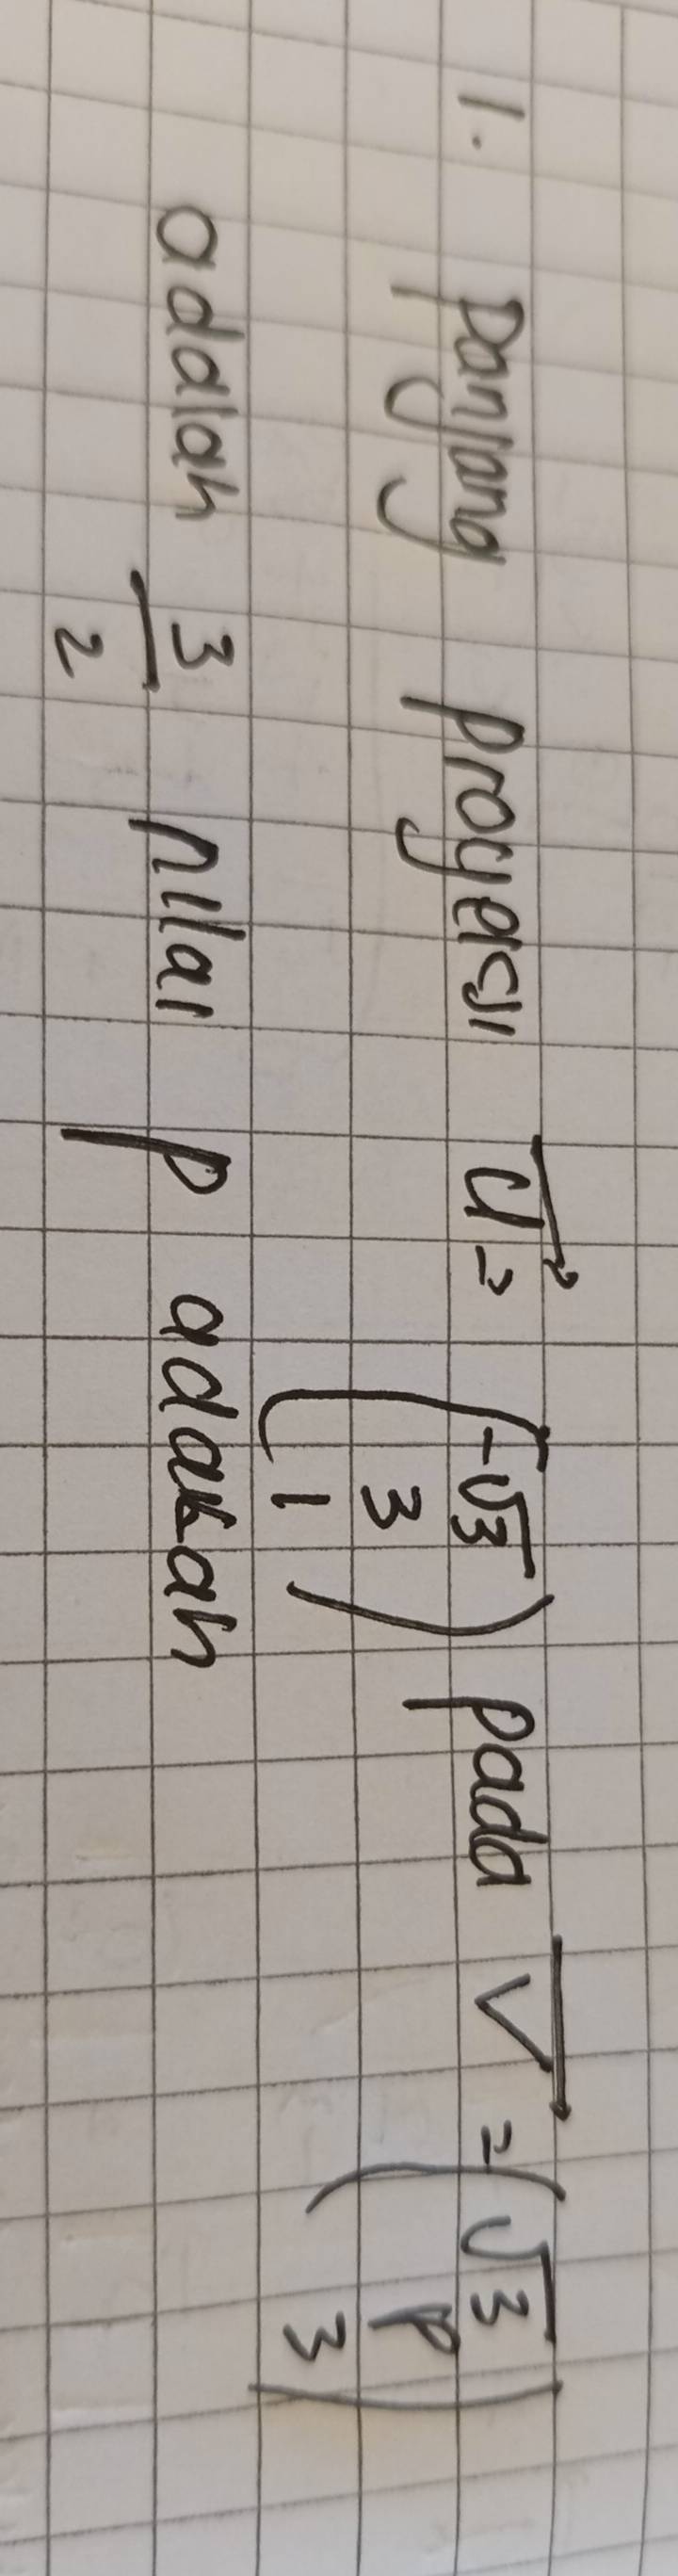 1. Panjang proyeksi u⃗ = (-√3 3 1) pada v⃗ = (√3 p 3)
adalah 3/2 nilai p adalah